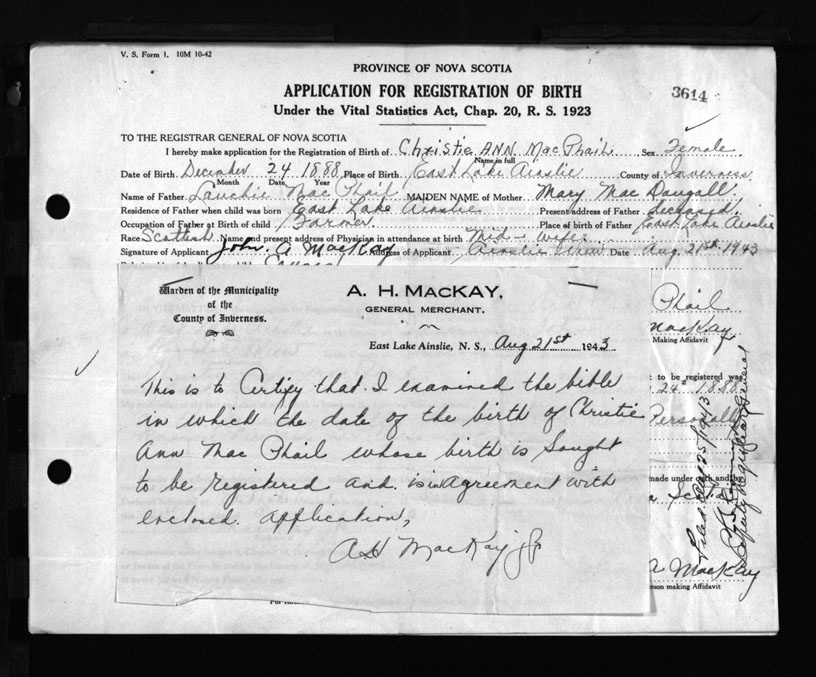 V. S. Form 1. 10M 10-42
PROVINCE OF NOVA SCOTIA
APPLICATION FOR REGISTRATION OF BIRTH
3614
Under the Vital Statistics Act, Chap. 20, R. S. 1923
TO THE REGISTRAR GENERAL OF NOVA SCOTIA
I hereby make application for the Registration of Birth of Christie ANN MacPhail Sex Female
Name in full
Date of Birth December 24 1888 Place of Birth East Lake Ainslie County of Inverness
Month Date Year
Name of Father Lauchie MacPhail MAIDEN NAME of Mother Mary MacDougall
Residence of Father when child was born East Lake Ainslie Present address of Father deceased.
Occupation of Father at Birth of child Farmer Place of birth of Father East Lake Ainslie
Race Scottish Name and present address of Physician in attendance at birth Mid-wife
Signature of Applicant John. A MacKay Address of Applicant Ainslie Date Aug. 21st 1943
Warden of the Municipality
of the
County of Inverness.
A. H. MACKAY,
GENERAL MERCHANT.
East Lake Ainslie, N. S., Aug 21st 1943
This is to Certify that I examined the bible
in which the date of the birth of Christie
Ann Mac Phail whose birth is Sought
to be registered and is in agreement with
enclosed application,
AH MacKay Jr
Phail
MacKay
Making Affidavit
t to be registered was
24th 1888
Personally
made under oath and by
A MacKay
rson making Affidavit
1943
Deputy Registrar General